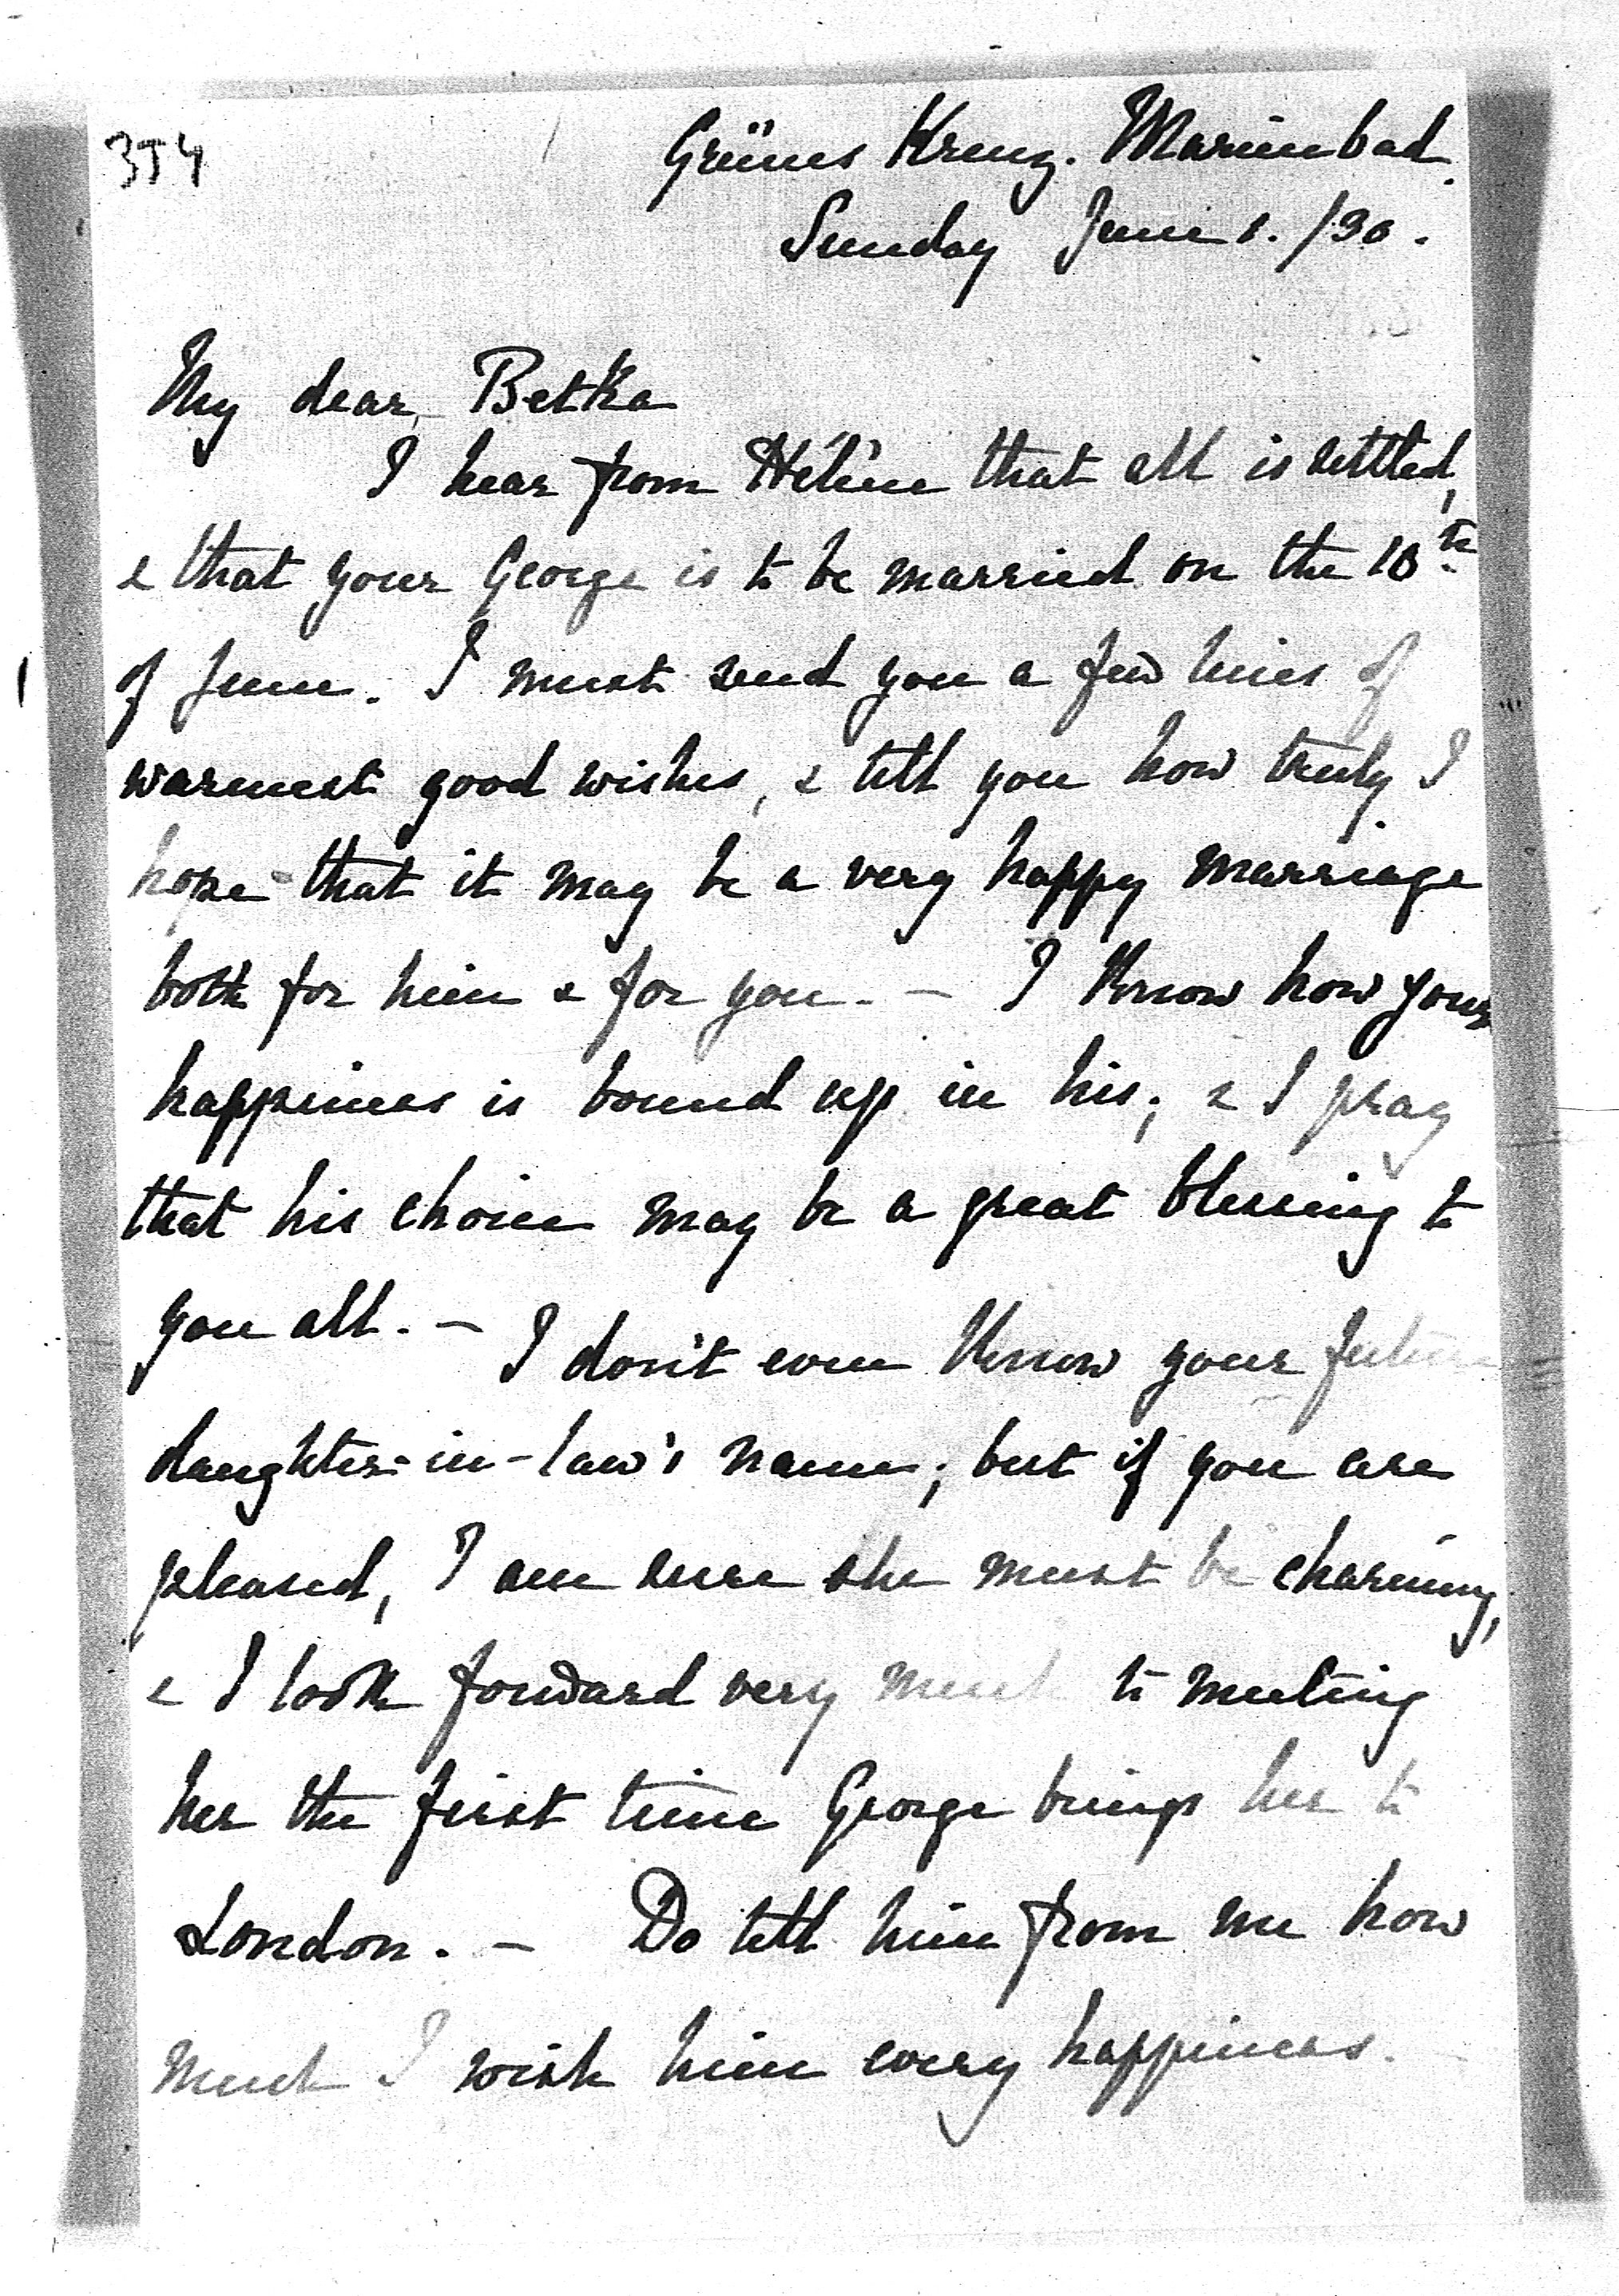 3T4
Grünes Kreuz. Marienbad.
Sunday June 1./30.
My dear Betka
I hear from Hélène that all is settled,
& that your George is to be married on the 10th
of June. I must send you a few lines of
warmest good wishes, & tell you how truly I
hope that it may be a very happy marriage
both for him & for you. – I know how your
happiness is bound up in his; & I pray
that his choice may be a great blessing to
you all. – I don't even know your future
daughter-in-law's name; but if you are
pleased, I am sure she must be charming,
& I look forward very much to meeting
her the first time George brings her to
London. – Do tell him from me how
much I wish him every happiness.